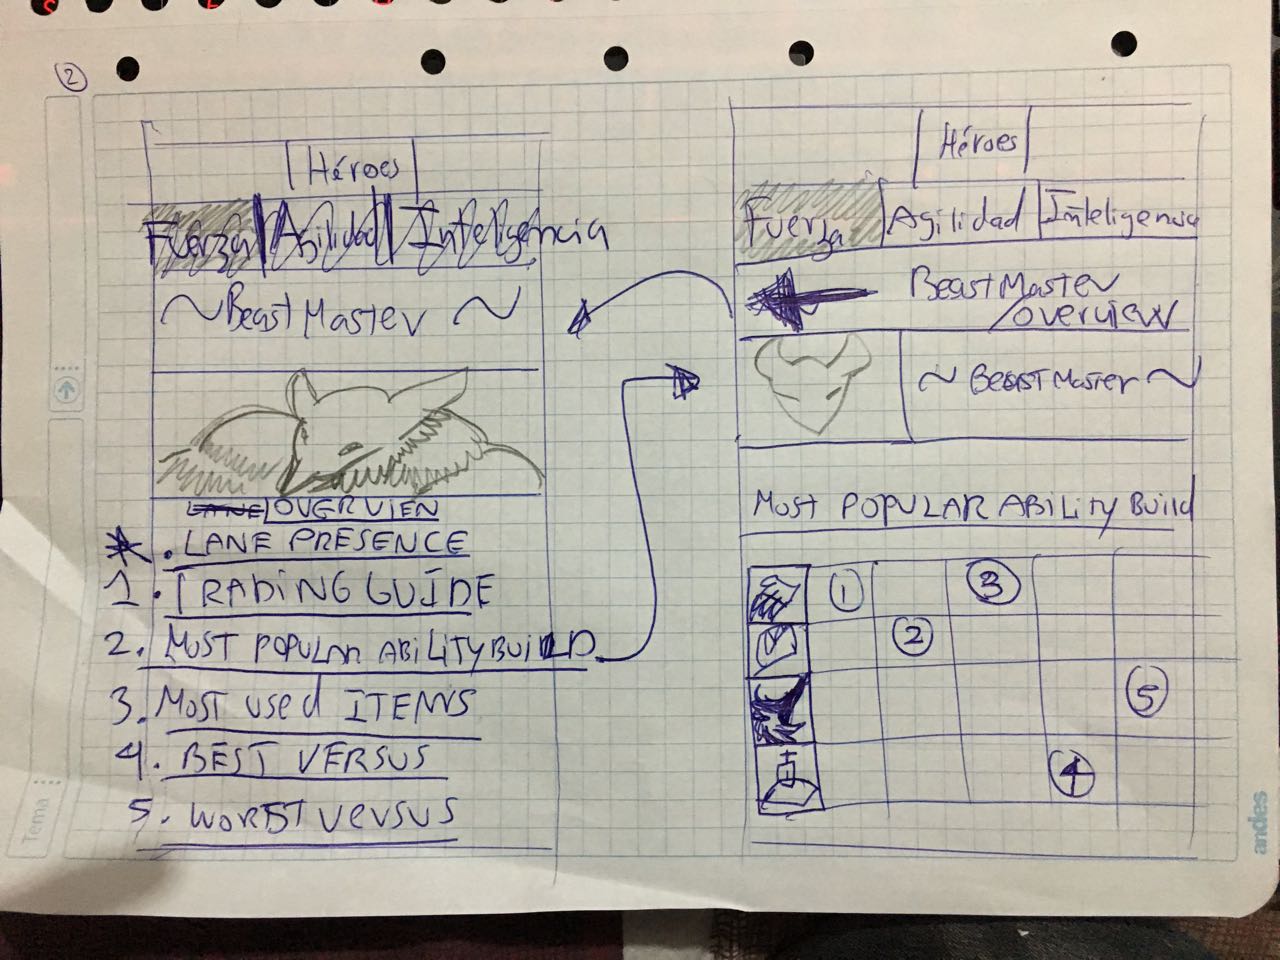 2
Héroes
Fuerza Agilidad Inteligencia
~BeastMaster ~
LANE OVERVIEN
. LANE PRESENCE
1. TRADING GUIDE
2. MOST POPULAR ABILITY BUILD
3. Most used ITEMS
4. BEST VERSUS
5. WORST VERSUS
Héroes
Fuerza Agilidad Inteligencia
BeastMaster
/overview
~ BEASTMASTER ~
MOST POPULAR ABILITY BUILD
1 3
2
5
4
Tema
andes